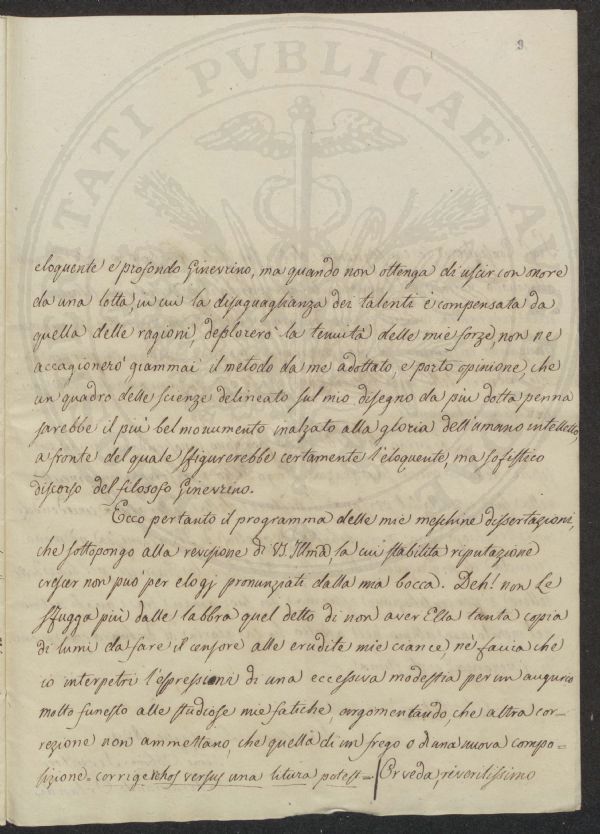 9
VTILITATI PVBLICAE
eloquente e profondo Ginevrino, ma quando non ottenga di uscir con onore
da una lotta, in cui la disuguaglianza dei talenti è compensata da
quella delle ragioni, deplorerò la tenuità delle mie forze, non ne
accagionerò giammai il metodo da me adottato, e porto opinione, che
un quadro delle scienze delineato sul mio disegno da più dotta penna
sarebbe il più bel monumento inalzato alla gloria dell'umano intelletto,
a fronte del quale sfigurerebbe certamente l'eloquente, ma sofistico
discorso del filosofo Ginevrino.
Ecco pertanto il programma delle mie meschine dissertazioni,
che sottopongo alla revisione di V.S. Illma, la cui stabilita riputazione
crescer non può per elogj pronunziati dalla mia bocca. Deh! non Le
sfugga più dalle labbra quel detto di non aver Ella tanta copia
di lumi da fare il censore alle erudite mie ciance, nè faccia che
io interpetri l'espressioni di una eccessiva modestia per un augurio
molto funesto alle studiose mie fatiche, argomentando, che altra cor-
rezione non ammettano, che quella di un frego o di una nuova compo-
sizione = corrige versus hos una litura potest = Or veda, riveritissimo